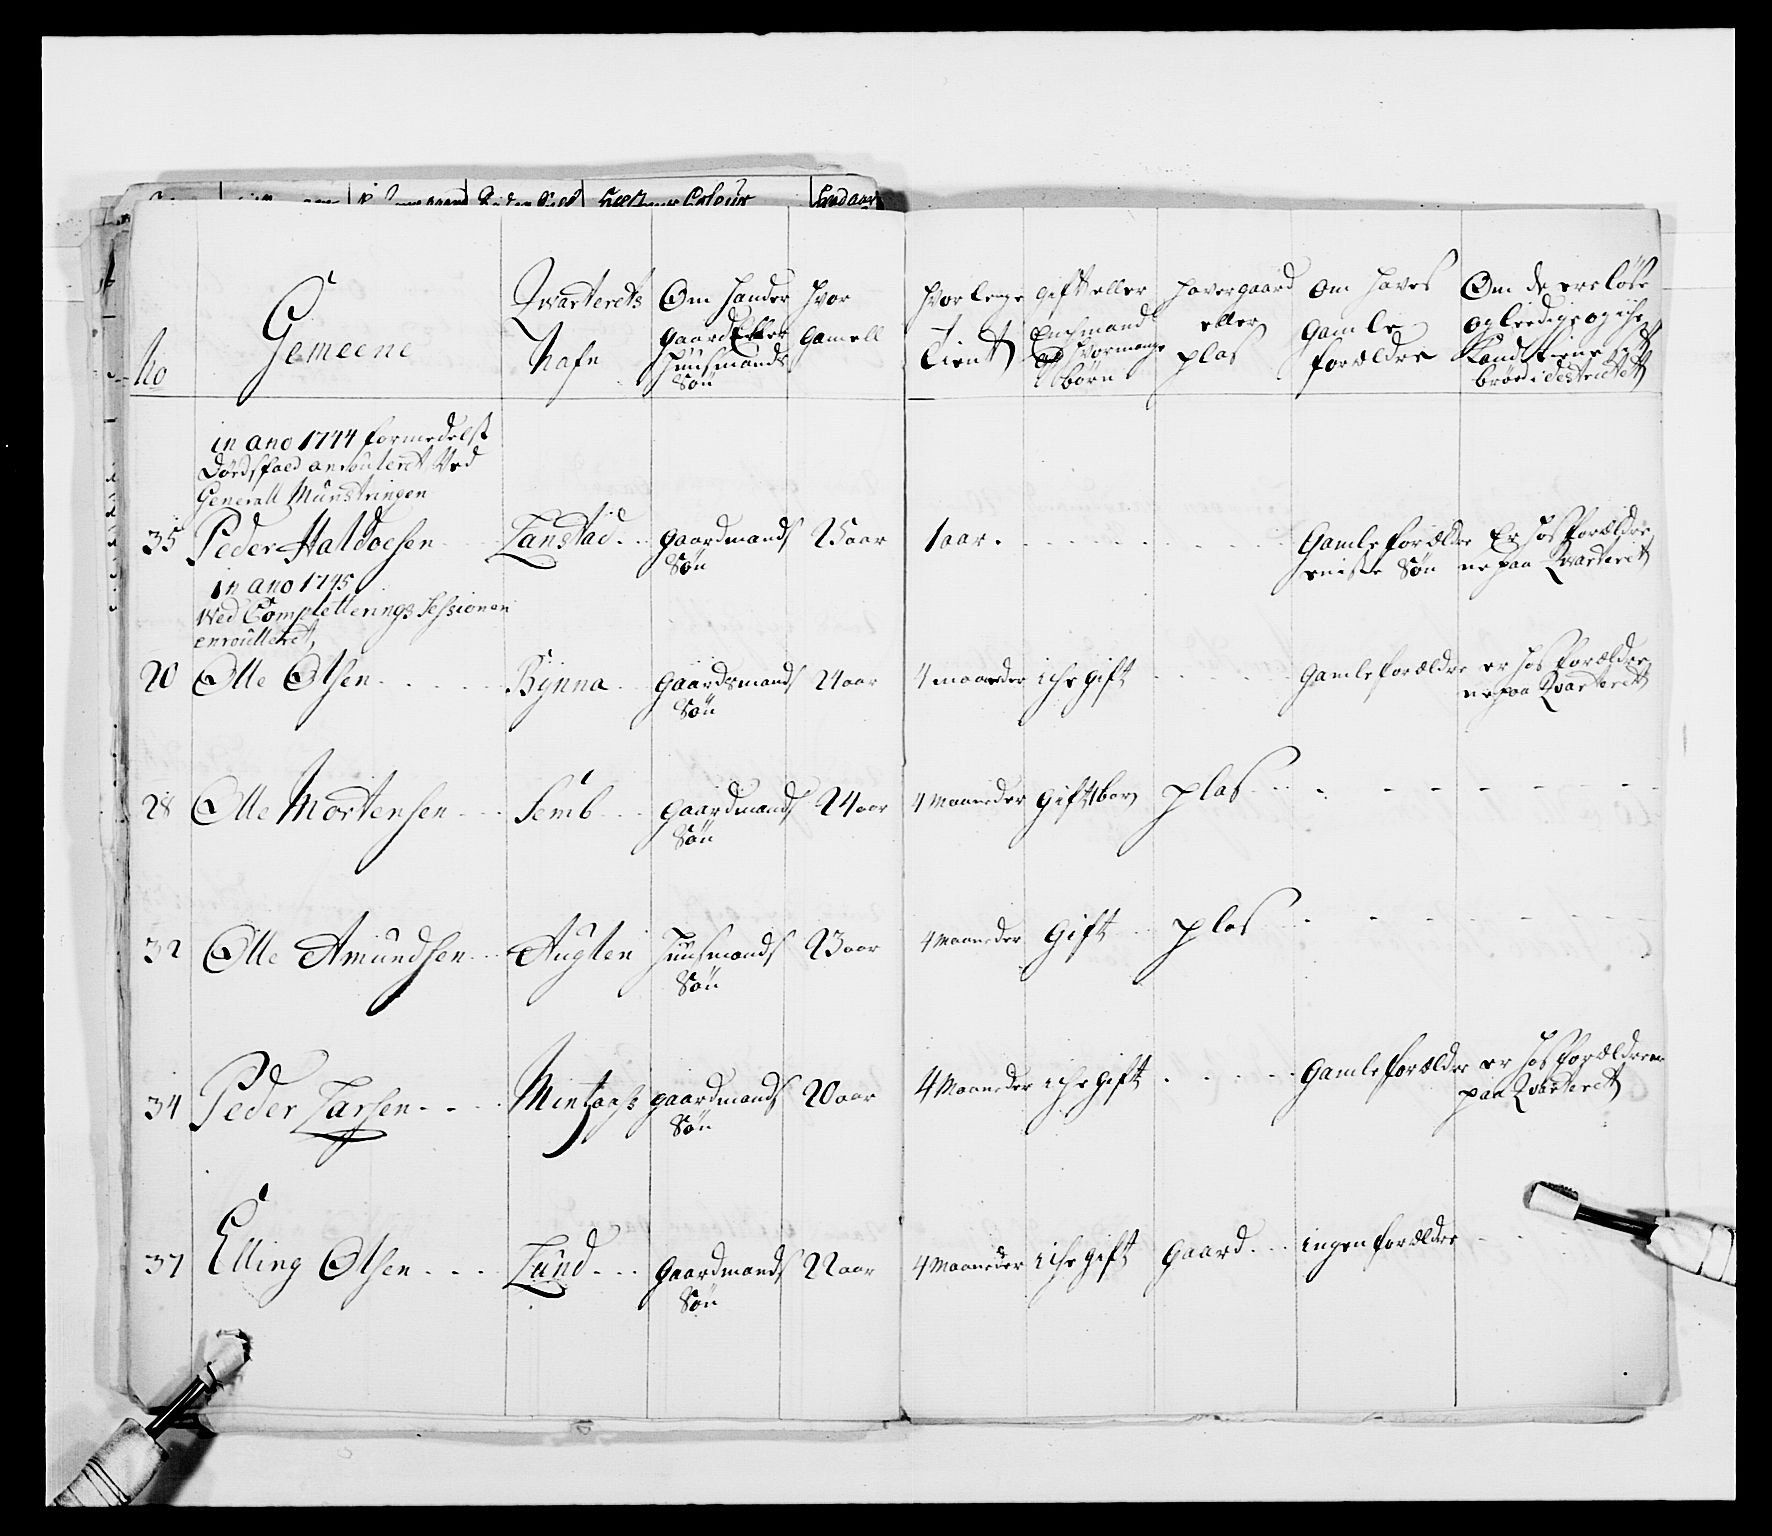 No
Gemeene
Qvarterets Nafn
Om hand er gaard Eller huusmands Søn
hvor gamell
hvor lenge tient
gift eller Enchmand og hvor mange børn
haver gaard eller plas
om haves gamle forældre
Om de ere løse og leedige og iche tiene i destrictet
in ano 1744 formedelst
Dødsfald enroulleret Ved
Generall Mûnstringen
35 Peder Haldoesen Lanstad gaardmands Søn 25 aar 1 aar Gamle forældre eniste Søn Er hos forældrene paa Qvarteret
in ano 1745
Ved Completterings Sessionen
enroulleret
20 Olle Olsen Bÿnna gaardsmands Søn 24 aar 4 maaneder iche gift gamle forældre er hos forældrene paa Qvarteret
28 Olle Mortensen Semb gaardmands Søn 24 aar 4 Maaneder gift 1 barn plas
32 Olle Amundsen Augsten huusmands Søn 23 aar 4 Maaneder gift plas
34 Peder Larsen gaardmands Søn 20 aar 4 Maaneder iche gift gamle forældre er hos forældrene paa Qvarteret
37 Elling Olsen Lund gaardmands Søn 22 aar 4 Maaneder iche gift gaard ingen forældre